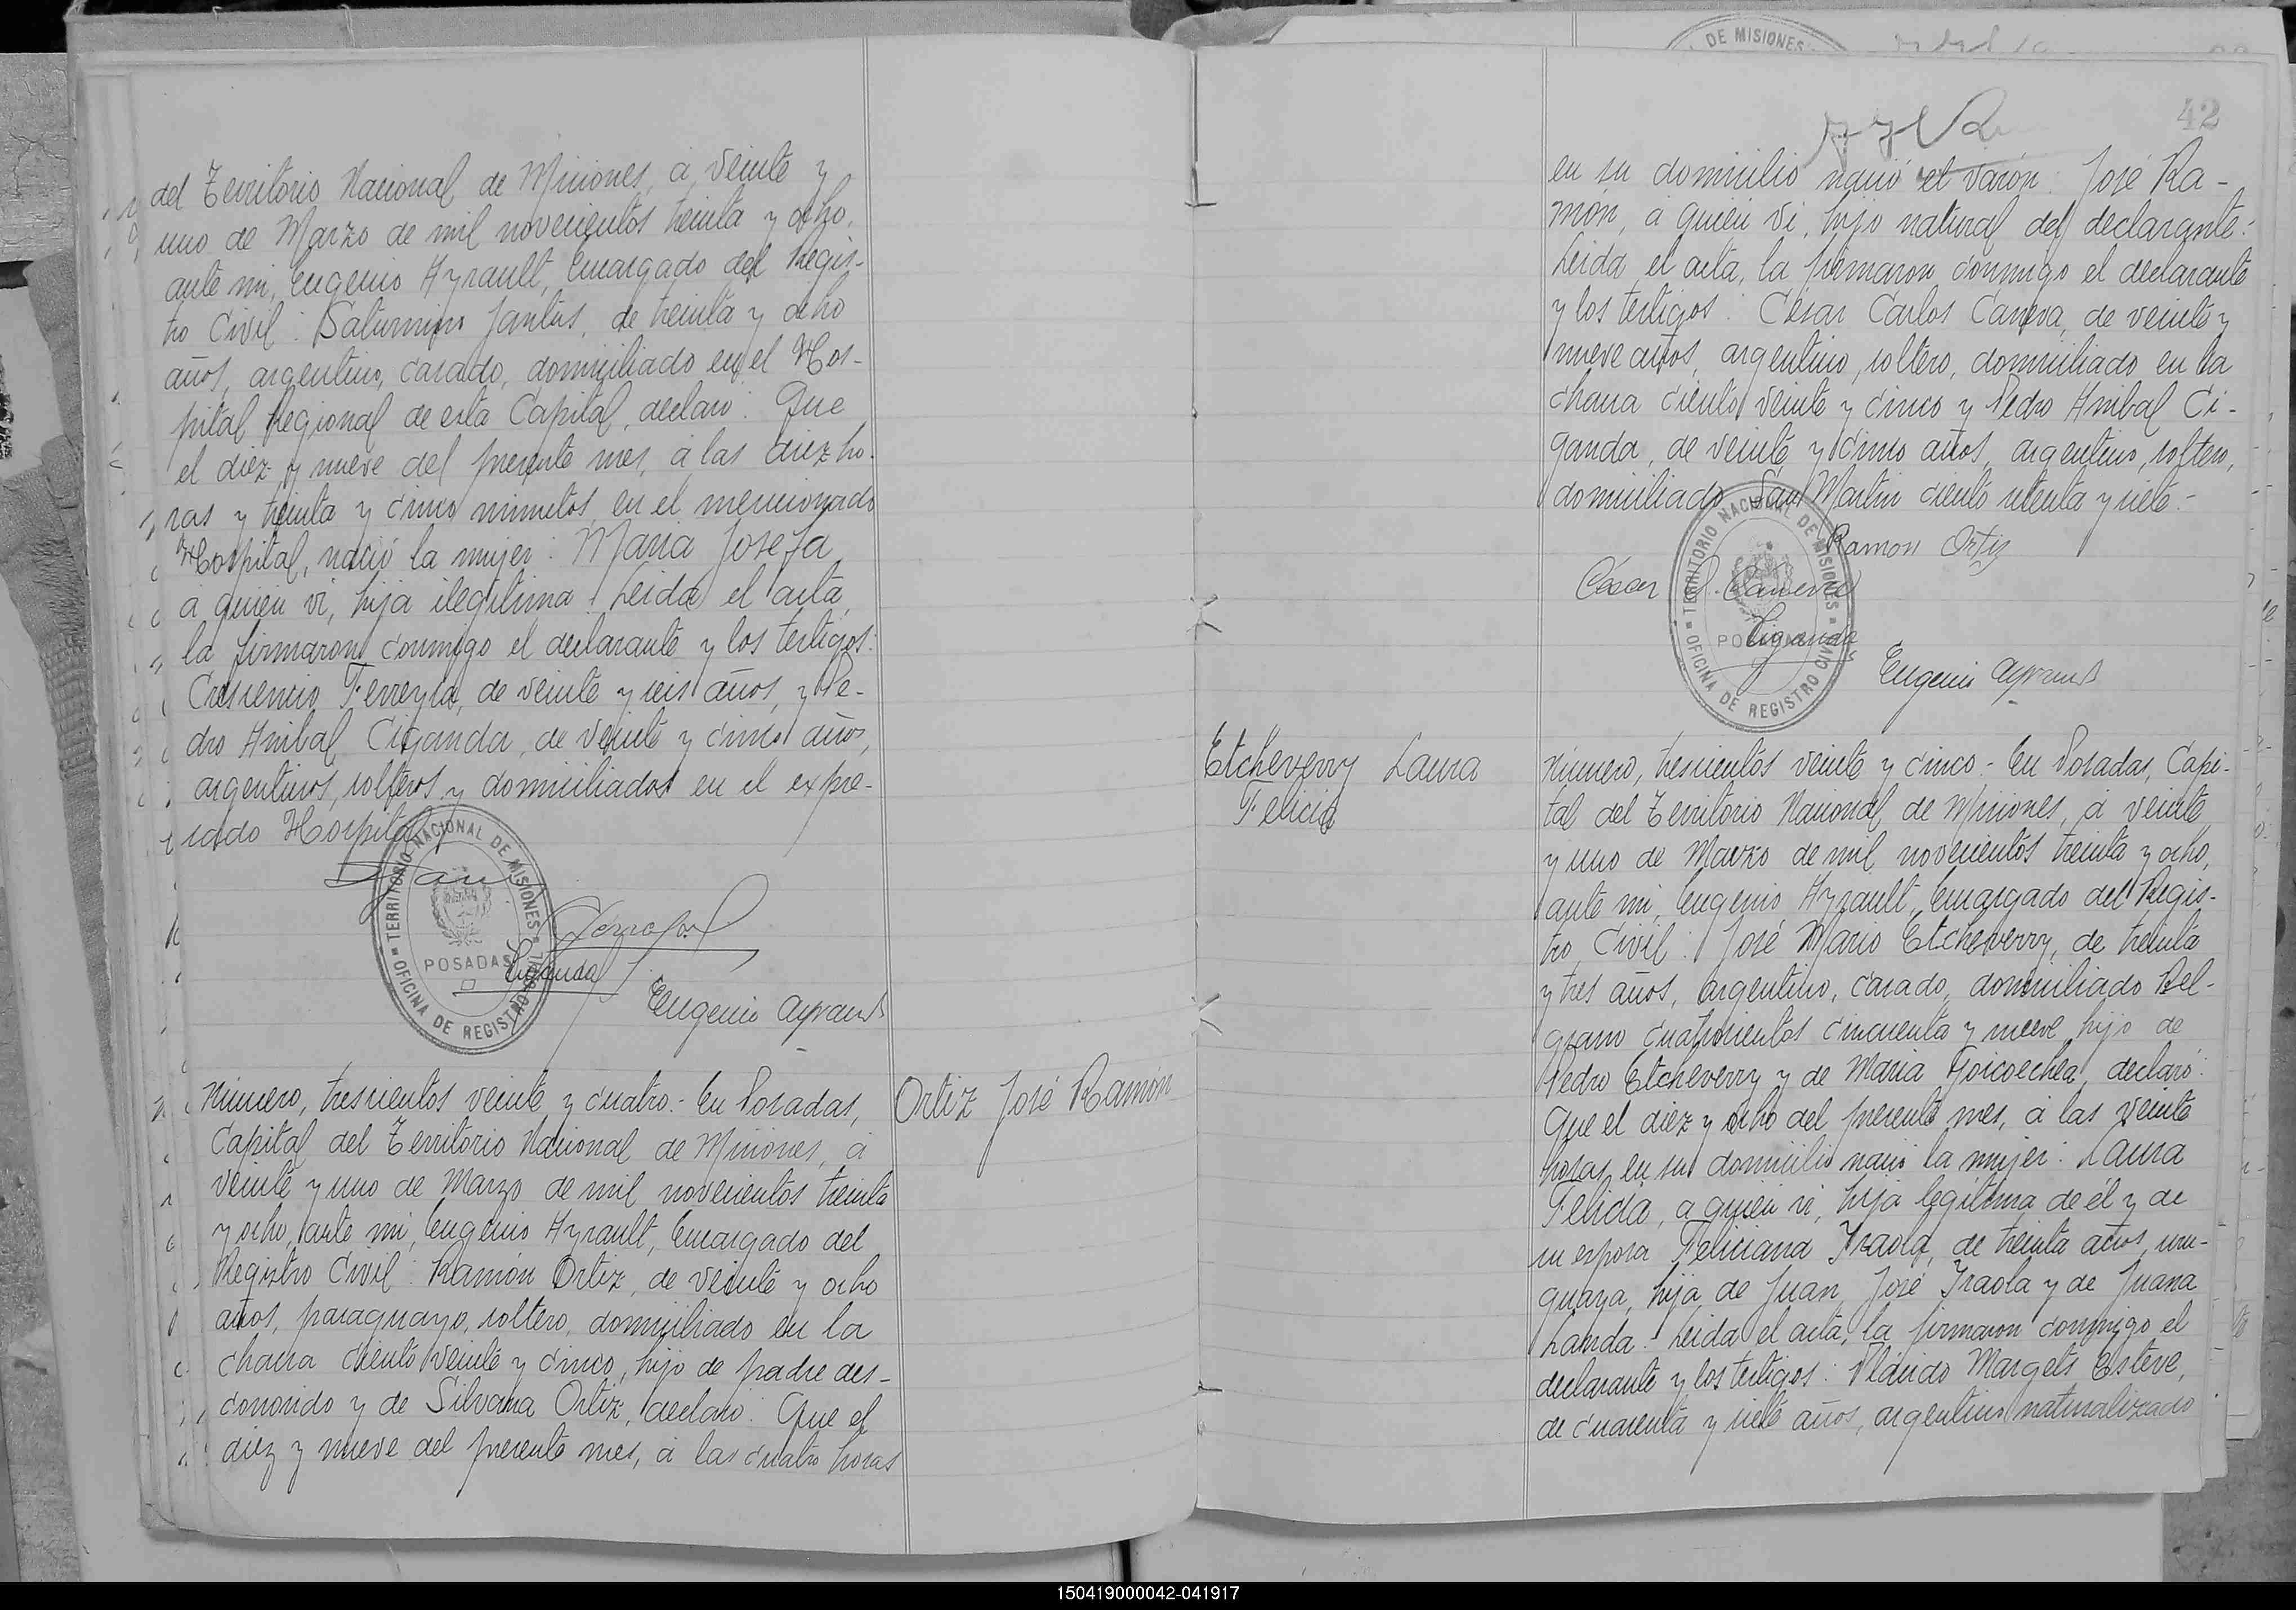 del Territorio Nacional de Misiones, á veinte y
uno de Marzo de mil novecientos treinta y ocho,
ante mi, Eugenio Ayrault, Encargado del Regis-
tro Civil: Saturnino Santus, de treinta y ocho
años, argentino, casado, domiciliado en el Hos-
pital Regional de esta Capital, declaró: Que
el diez y nueve del presente mes, á las diez ho-
ras y treinta y cinco minutos, en el mencionado
Hospital, nació la mujer: Maria Josefa
a quien vi, hija ilegitima. Leida el acta,
la firmaron conmigo el declarante y los testigos:
Crescencio Ferreyra, de veinte y seis años, y Pe-
dro Anibal Ciganda, de veinte y cinco años,
argentinos, solteros y domiciliados en el expre-
sado Hospital
TERRITORIO NACIONAL DE MISIONES
POSADAS
OFICINA DE REGISTRO CIVIL
Ciganda
Eugenio Ayrault
Número, trescientos veinte y cuatro.- En Posadas,
Ortiz José Ramón
Capital del Territorio Nacional de Misiones, á
veinte y uno de Marzo de mil novecientos treinta
y ocho, ante mi, Eugenio Ayrault, Encargado del
Registro Civil: Ramón Ortiz, de veinte y ocho
años, paraguayo, soltero, domiciliado en la
chacra ciento veinte y cinco, hijo de padre des-
conocido y de Silvana Ortiz, declaró: Que el
diez y nueve del presente mes, á las cuatro horas
DE MISIONES
42
en su domicilio nació el varón: José Ra-
món, a quien vi, hijo natural del declarante:
Leida el acta, la firmaron conmigo el declarante
y los testigos: César Carlos Caneva, de veinte y
nueve años, argentino, soltero, domiciliado en la
chacra ciento veinte y cinco y Pedro Anibal Ci-
ganda, de veinte y cinco años, argentino, soltero,
domiciliado San Martin ciento setenta y siete.-
TERRITORIO NACIONAL DE MISIONES
POSADAS
OFICINA DE REGISTRO CIVIL
Ramon Ortiz
César C. Caneva
Ciganda
Eugenio Ayrault
Etcheverry Laura
Felicia
Número, trescientos veinte y cinco.- En Posadas, Capi-
tal del Territorio Nacional de Misiones, á veinte
y uno de Marzo de mil novecientos treinta y ocho,
ante mi, Eugenio Ayrault, Encargado del Regis-
tro Civil: José Mario Etcheverry, de treinta
y tres años, argentino, casado, domiciliado Bel-
grano cuatrocientos cincuenta y nueve, hijo de
Pedro Etcheverry y de Maria Goicoechea, declaró:
Que el diez y ocho del presente mes, á las veinte
horas, en su domicilio nació la mujer: Laura
Felicia, a quien vi, hija legitima de él y de
su esposa Feliciana Iraola, de treinta años, uru-
guaya, hija de Juan José Iraola y de Juana
Landa. Leida el acta, la firmaron conmigo el
declarante y los testigos: Plácido Margets Esteve,
de cuarenta y siete años, argentino naturalizado
150419000042-041917